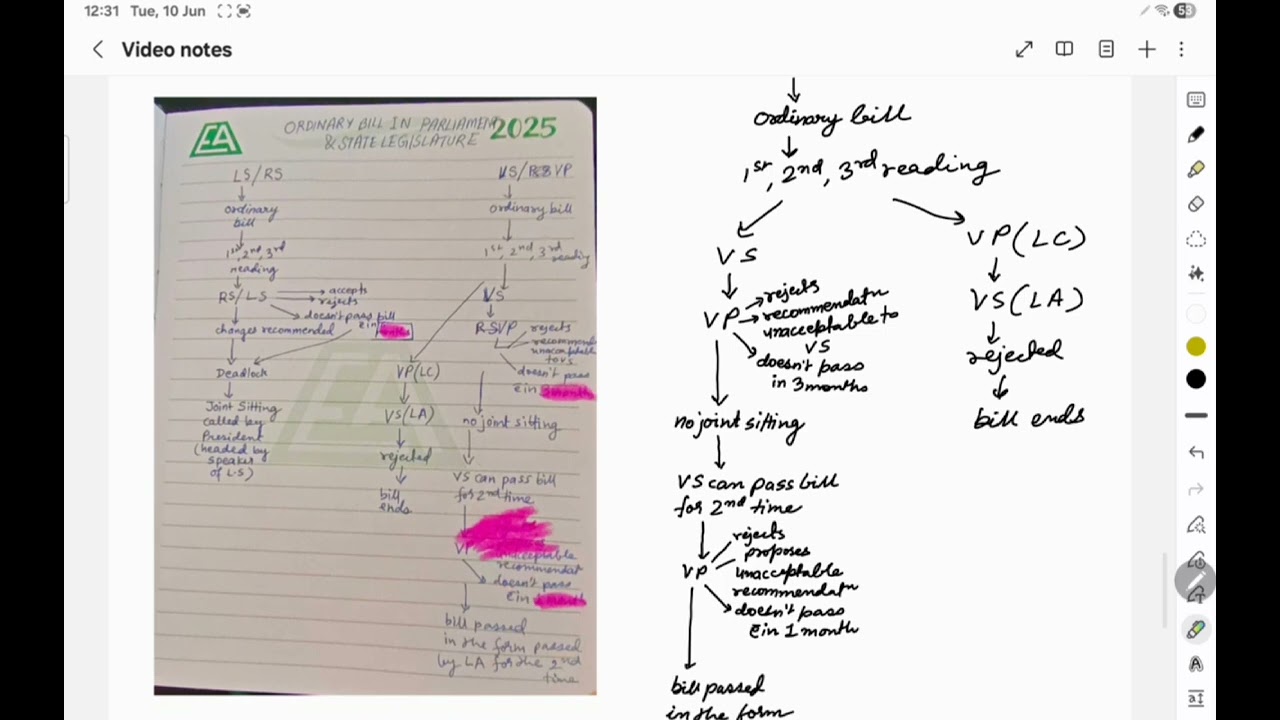 12:31 Tue, 10 Jun
58
Video notes
EA
ORDINARY BILL IN PARLIAMENT
& STATE LEGISLATURE
2025
LS/RS
↓
ordinary
bill
↓
1st, 2nd, 3rd
reading
↓
RS/LS → accepts
→ rejects
→ doesn't pass bill
c̄ in
changes recommended
↓
Deadlock
↓
Joint Sitting
called by
President
(headed by
speaker
of LS)
VP
↓
ordinary bill
↓
1st, 2nd, 3rd reading
↓
VS
↓
VP
rejects
unacceptable
to VS
doesn't pass
c̄ in 3 months
VP(LC)
↓
VS(LA)
↓
rejected
↓
bill
ends
no joint sitting
↓
VS can pass bill
for 2nd time
↓
VP
unacceptable
recommendatn
doesn't pass
c̄ in
↓
bill passed
in the form passed
by LA for the 2nd
time
↓
ordinary bill
↓
1st, 2nd, 3rd reading
VS
↓
VP → rejects
→ recommendatn
unacceptable to
VS
doesn't pass
in 3 months
↓
no joint sitting
↓
VS can pass bill
for 2nd time
↓
VP
rejects
proposes
unacceptable
recommendatn
doesn't pass
c̄ in 1 month
↓
bill passed
in the form
VP(LC)
↓
VS(LA)
↓
rejected
↓
bill ends